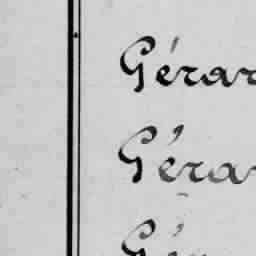 Gérar
Géra
Gé